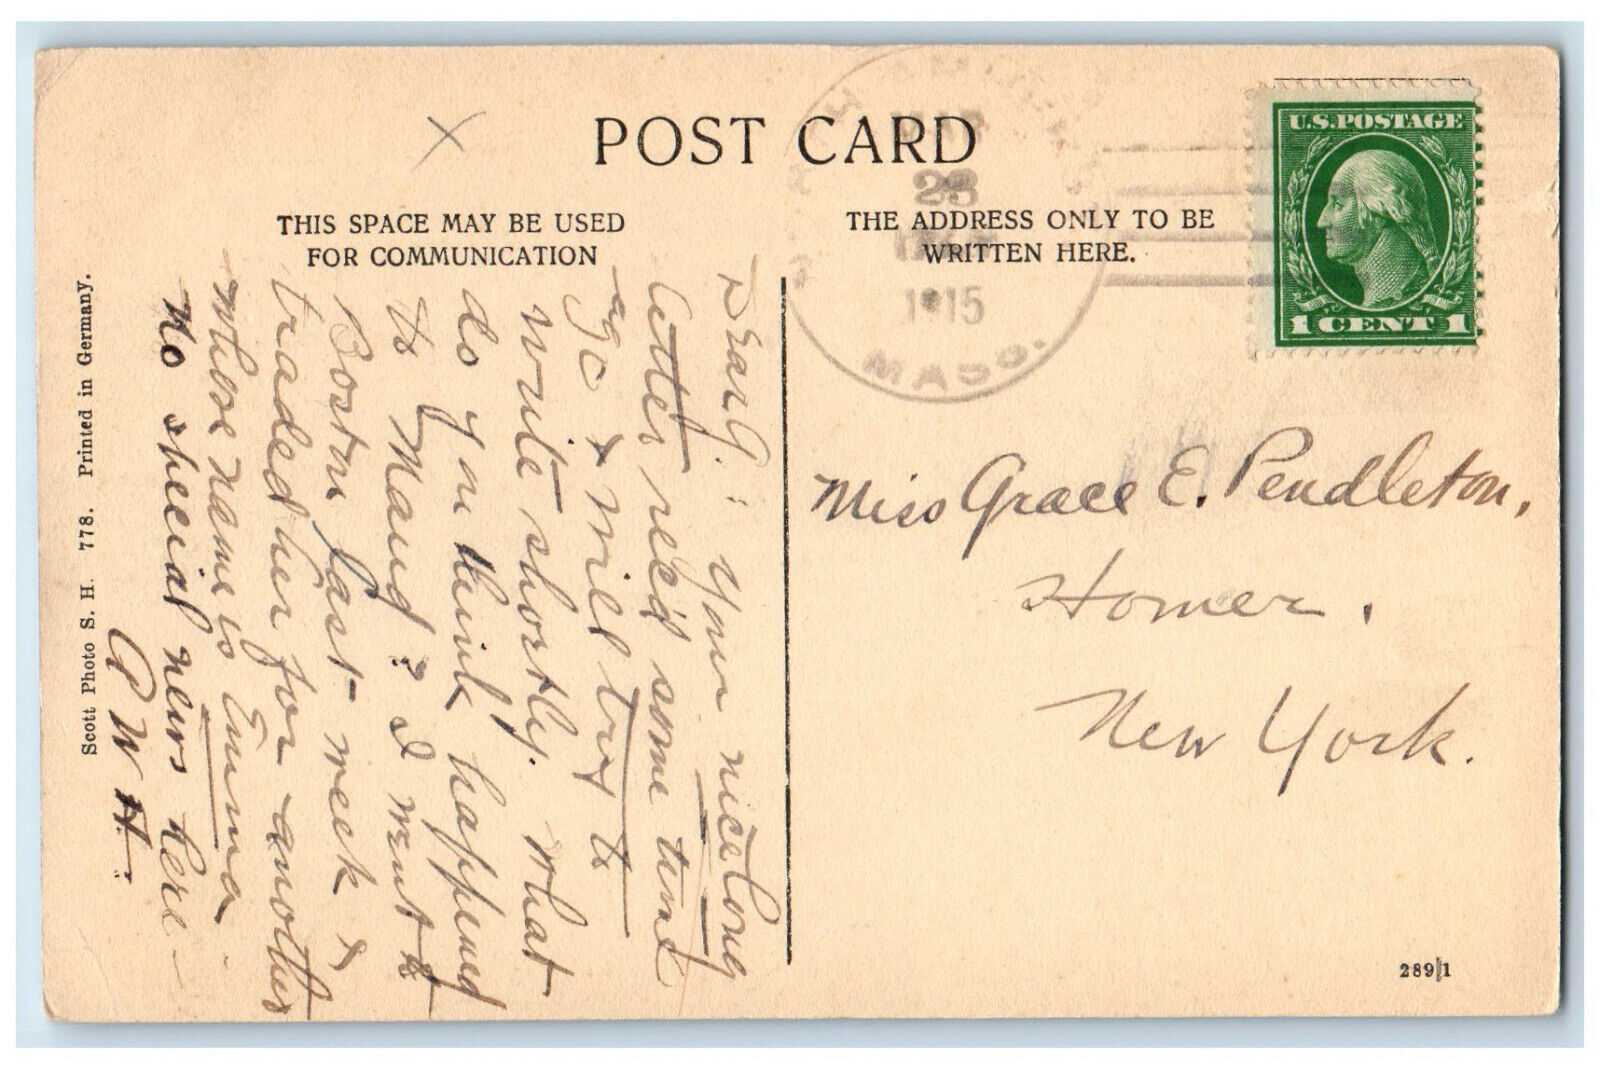 POST CARD
THIS SPACE MAY BE USED
FOR COMMUNICATION
THE ADDRESS ONLY TO BE
WRITTEN HERE.
U.S. POSTAGE
1 CENT 1
1915
MASS.
Dear G: Your nice long
letter rec'd some time
ago & will try to
write shortly. What
do you think happened
to Maud? I went to
Boston last week &
traded her for another
whose name is Emma
No special news here —
A W H.
Miss Grace E. Pendleton,
Homer,
New York.
Scott Photo S. H. 778. Printed in Germany.
289/1